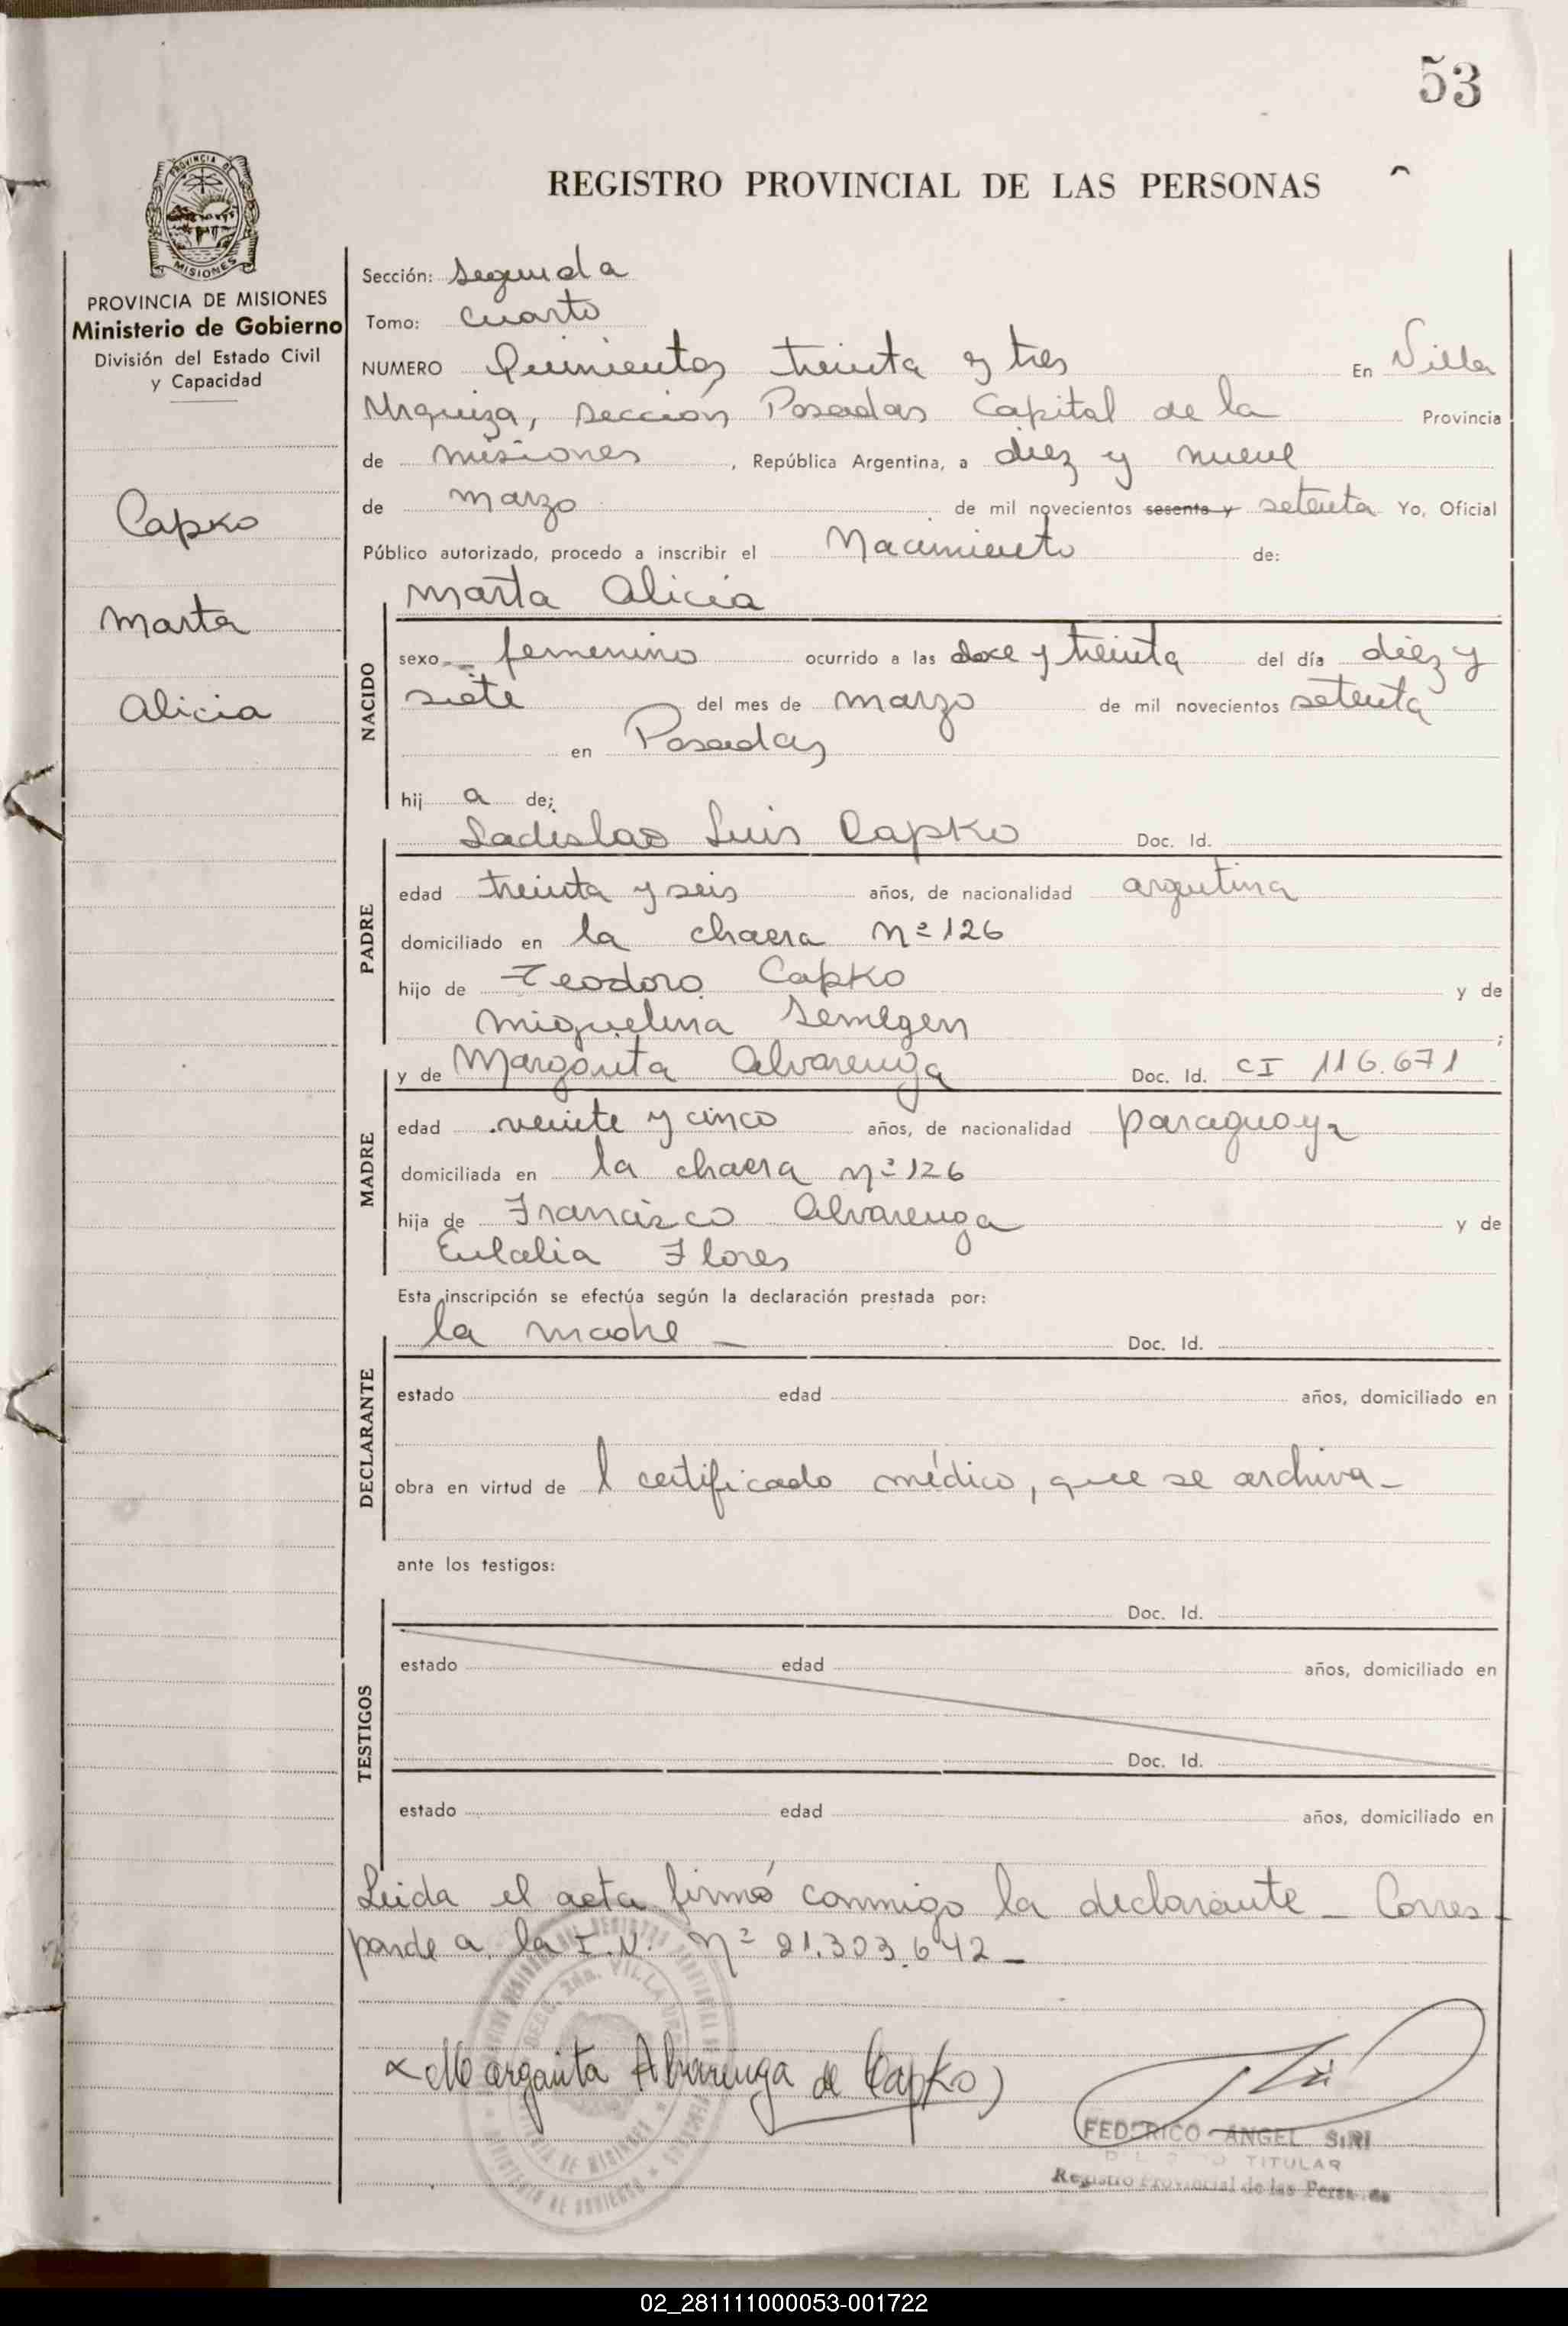 53
REGISTRO PROVINCIAL DE LAS PERSONAS
PROVINCIA DE
MISIONES
PROVINCIA DE MISIONES
Ministerio de Gobierno
División del Estado Civil
y Capacidad
Capko
Marta
Alicia
Sección: Segunda
Tomo: Cuarto
NUMERO Quinientos treinta y tres En Villa
Urquiza, Sección Posadas Capital de la Provincia
de Misiones, República Argentina, a diez y nueve
de marzo de mil novecientos sesenta y setenta Yo, Oficial
Público autorizado, procedo a inscribir el Nacimiento de:
NACIDO
Marta Alicia
sexo femenino ocurrido a las doce y treinta del día diez y
siete del mes de marzo de mil novecientos setenta
en Posadas
hij a de;
PADRE
Ladislao Luis Capko Doc. Id.
edad treinta y seis años, de nacionalidad argentina
domiciliado en la chacra nº 126
hijo de Teodoro Capko y de
Miguelina Semegen ;
MADRE
y de Margarita Alvarenga Doc. Id. CI 116.671
edad veinte y cinco años, de nacionalidad paraguaya
domiciliada en la chacra nº 126
hija de Francisco Alvarenga y de
Eulalia Flores
Esta inscripción se efectúa según la declaración prestada por:
DECLARANTE
la madre Doc. Id.
estado edad años, domiciliado en
obra en virtud de l certificado médico, que se archiva -
ante los testigos:
TESTIGOS
Doc. Id.
estado edad años, domiciliado en
Doc. Id.
estado edad años, domiciliado en
Leida el acta firmó conmigo la declarante - Corres-
ponde a la I.N. Nº 21.303.642 -
Margarita Alvarenga de Capko
FEDERICO ANGEL SIRI
TITULAR
Registro Provincial de las Personas
02_281111000053-001722